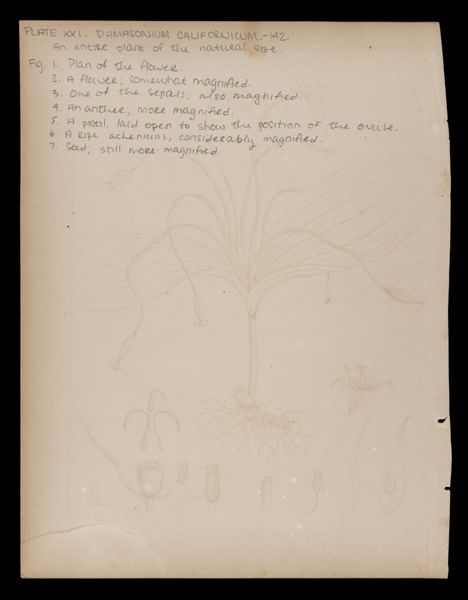 PLATE XXI. DAMASONIUM CALIFORNICUM.-142.
An entire plant of the natural size.
Fig. 1. Plan of the flower.
2. A flower; somewhat magnified.
3. One of the sepals; also magnified.
4. An anther; more magnified.
5. A pistil, laid open to show the position of the ovule.
6. A ripe achenium; considerably magnified.
7. Seed; still more magnified.